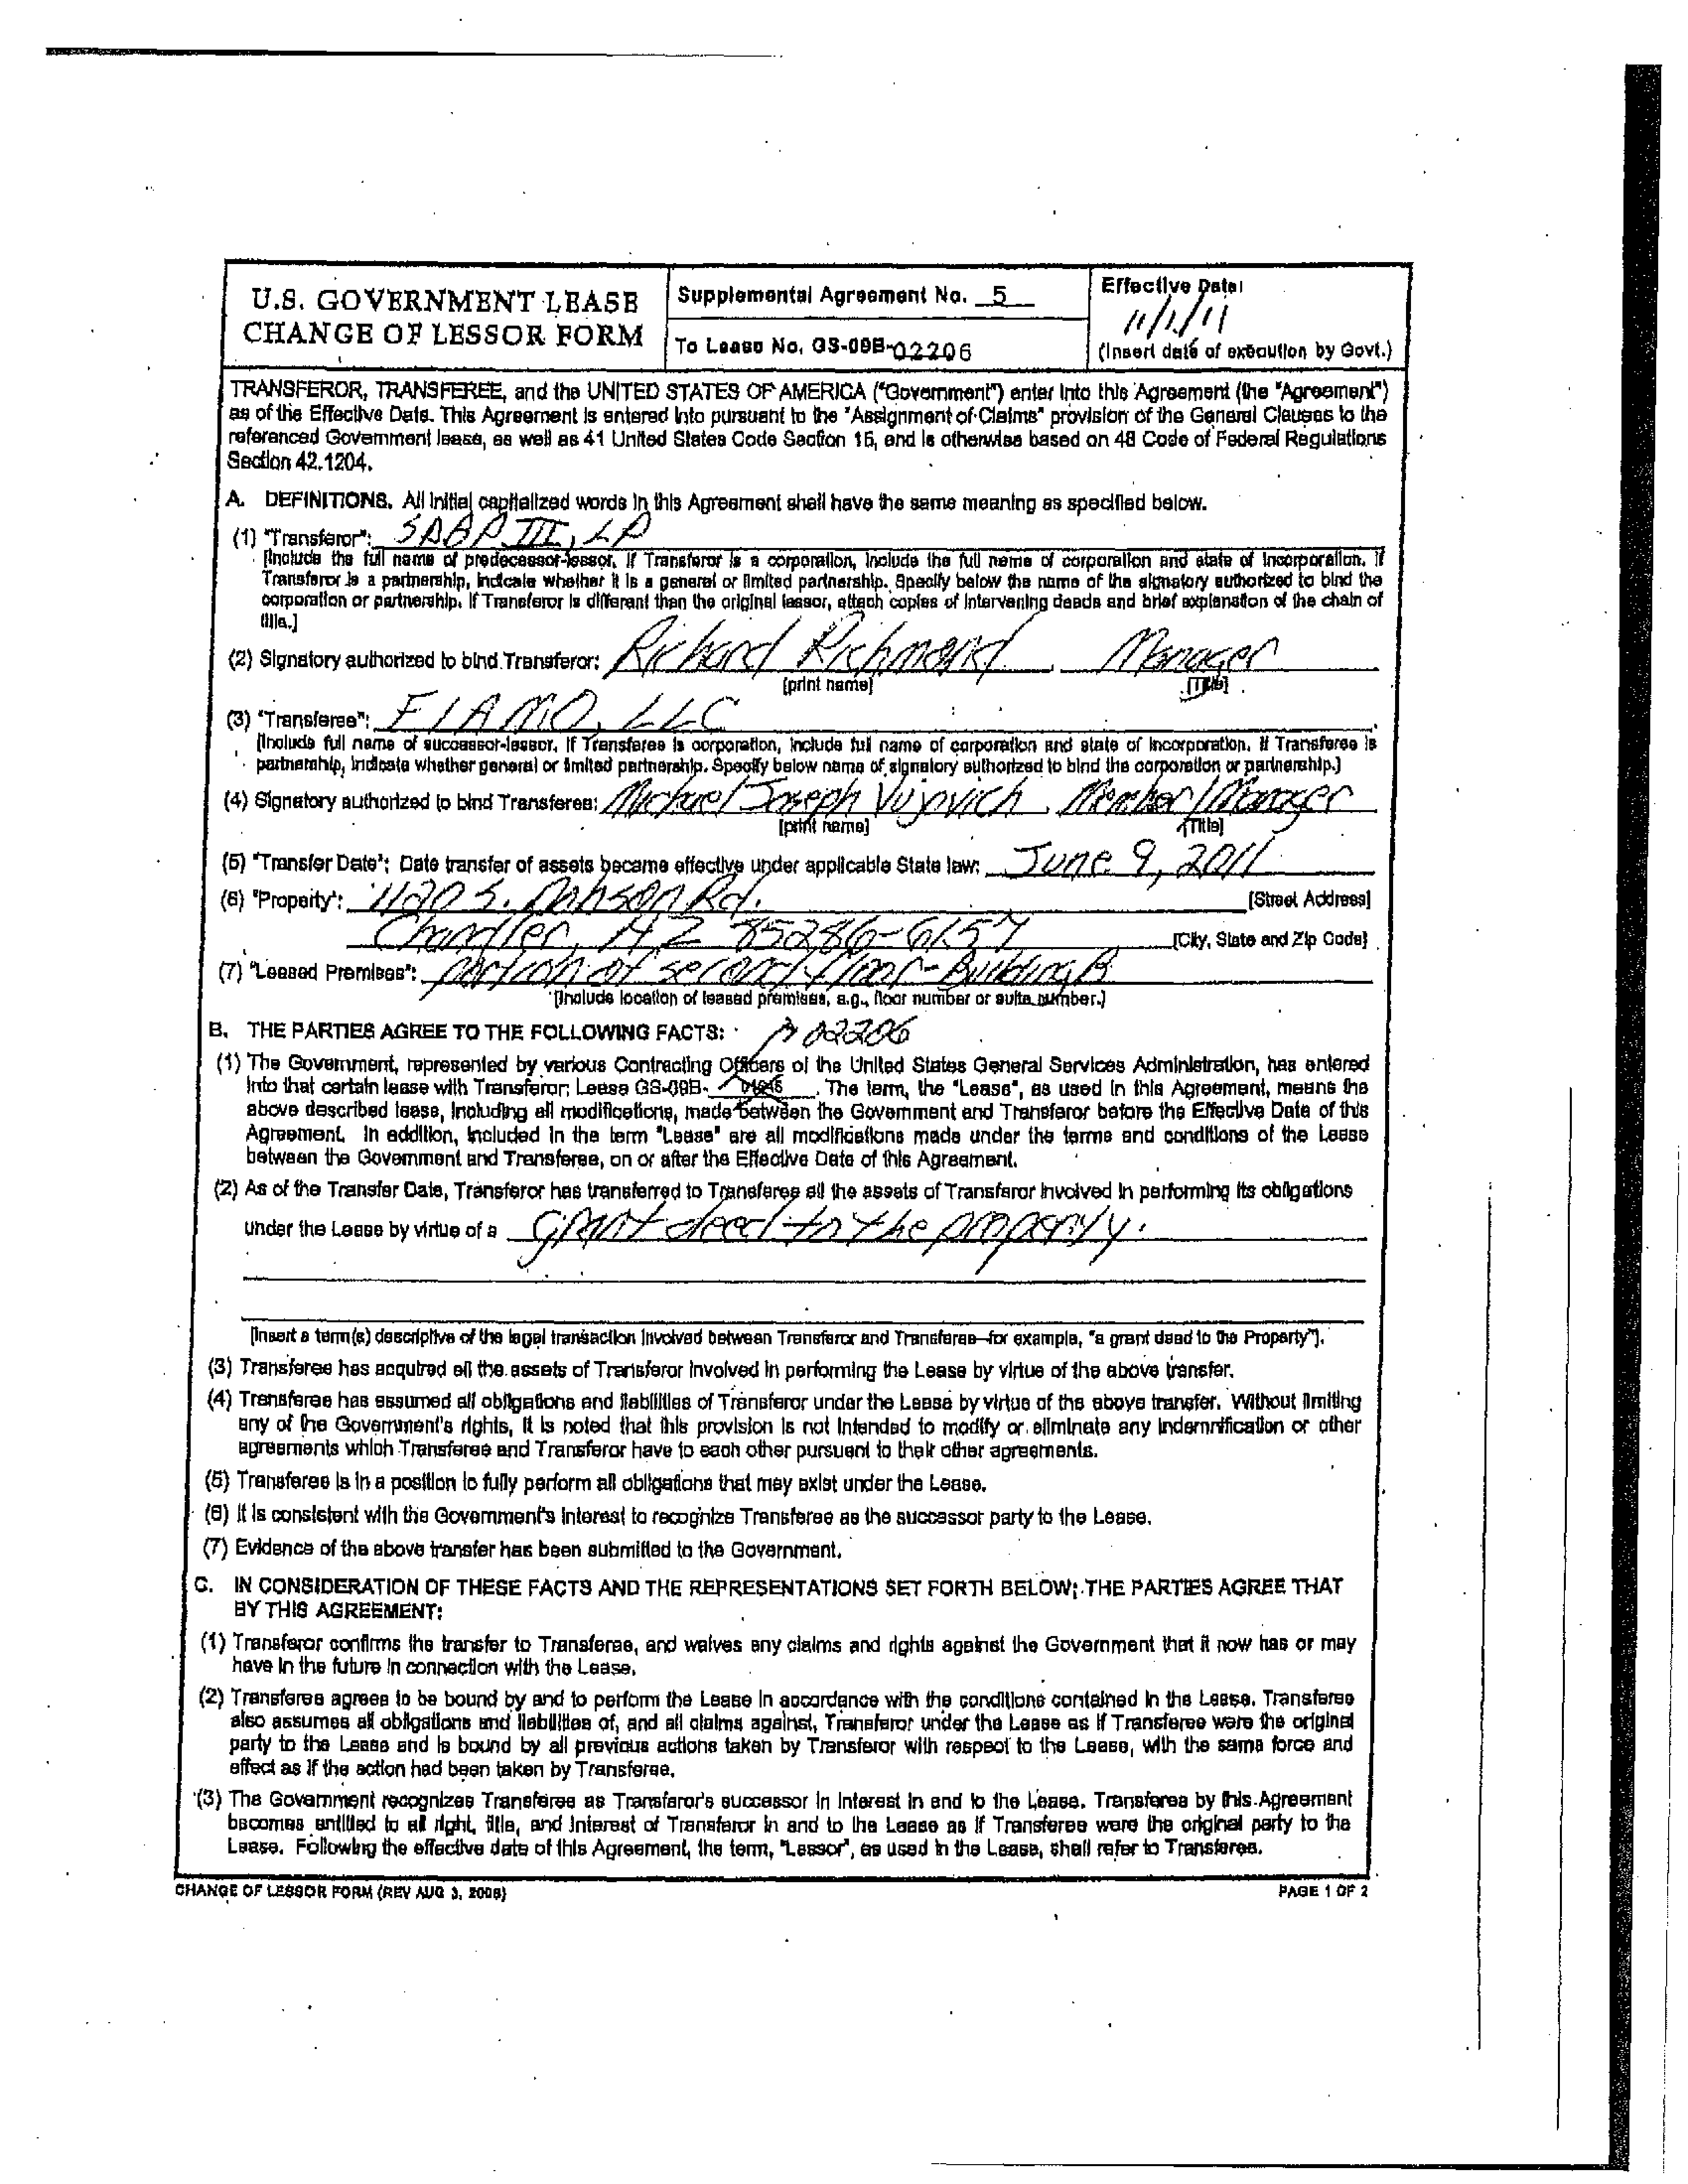 U.S. GOVERNMENT LEASE
CHANGE OF LESSOR FORM
Supplemental Agreement No. 5
To Lease No. GS-09B-02206
Effective Date:
11/1/11
(Insert date of execution by Govt.)
TRANSFEROR, TRANSFEREE, and the UNITED STATES OF AMERICA ("Government") enter into this Agreement (the "Agreement")
as of the Effective Date. This Agreement is entered into pursuant to the "Assignment of Claims" provision of the General Clauses to the
referenced Government lease, as well as 41 United States Code Section 15, and is otherwise based on 48 Code of Federal Regulations
Section 42.1204.
A. DEFINITIONS. All initial capitalized words in this Agreement shall have the same meaning as specified below.
(1) "Transferor": SABP III, LP
[Include the full name of predecessor-lessor. If Transferor is a corporation, include the full name of corporation and state of incorporation. If
Transferor is a partnership, indicate whether it is a general or limited partnership. Specify below the name of the signatory authorized to bind the
corporation or partnership. If Transferor is different than the original lessor, attach copies of intervening deeds and brief explanation of the chain of
title.]
(2) Signatory authorized to bind Transferor: Richard Richmond Manager
[print name] [Title]
(3) "Transferee": FIAMO, LLC
[Include full name of successor-lessor. If Transferee is corporation, include full name of corporation and state of incorporation. If Transferee is
partnership, indicate whether general or limited partnership. Specify below name of signatory authorized to bind the corporation or partnership.]
(4) Signatory authorized to bind Transferee: Michael Joseph Vujovich Member/Manager
[print name] [Title]
(5) "Transfer Date": Date transfer of assets became effective under applicable State law: June 9, 2011
(6) "Property": 1120 S. Rd. [Street Address]
Chandler, AZ 85286-6157 [City, State and Zip Code]
(7) "Leased Premises": portion of second floor - Building B
[Include location of leased premises, e.g., floor number or suite number.]
B. THE PARTIES AGREE TO THE FOLLOWING FACTS: 02206
(1) The Government, represented by various Contracting Officers of the United States General Services Administration, has entered
into that certain lease with Transferor; Lease GS-09B- . The term, the "Lease", as used in this Agreement, means the
above described lease, including all modifications, made between the Government and Transferor before the Effective Date of this
Agreement. In addition, included in the term "Lease" are all modifications made under the terms and conditions of the Lease
between the Government and Transferee, on or after the Effective Date of this Agreement.
(2) As of the Transfer Date, Transferor has transferred to Transferee all the assets of Transferor involved in performing its obligations
under the Lease by virtue of a grant deed to the property.
[Insert a term(s) descriptive of the legal transaction involved between Transferor and Transferee—for example, "a grant deed to the Property"].
(3) Transferee has acquired all the assets of Transferor involved in performing the Lease by virtue of the above transfer.
(4) Transferee has assumed all obligations and liabilities of Transferor under the Lease by virtue of the above transfer. Without limiting
any of the Government's rights, it is noted that this provision is not intended to modify or eliminate any indemnification or other
agreements which Transferee and Transferor have to each other pursuant to their other agreements.
(5) Transferee is in a position to fully perform all obligations that may exist under the Lease.
(6) It is consistent with the Government's interest to recognize Transferee as the successor party to the Lease.
(7) Evidence of the above transfer has been submitted to the Government.
C. IN CONSIDERATION OF THESE FACTS AND THE REPRESENTATIONS SET FORTH BELOW; THE PARTIES AGREE THAT
BY THIS AGREEMENT:
(1) Transferor confirms the transfer to Transferee, and waives any claims and rights against the Government that it now has or may
have in the future in connection with the Lease.
(2) Transferee agrees to be bound by and to perform the Lease in accordance with the conditions contained in the Lease. Transferee
also assumes all obligations and liabilities of, and all claims against, Transferor under the Lease as if Transferee were the original
party to the Lease and is bound by all previous actions taken by Transferor with respect to the Lease, with the same force and
effect as if the action had been taken by Transferee.
(3) The Government recognizes Transferee as Transferor's successor in interest in and to the Lease. Transferee by this Agreement
becomes entitled to all right, title, and interest of Transferor in and to the Lease as if Transferee were the original party to the
Lease. Following the effective date of this Agreement, the term, "Lessor", as used in the Lease, shall refer to Transferee.
CHANGE OF LESSOR FORM (REV AUG 3, 2006)
PAGE 1 OF 2